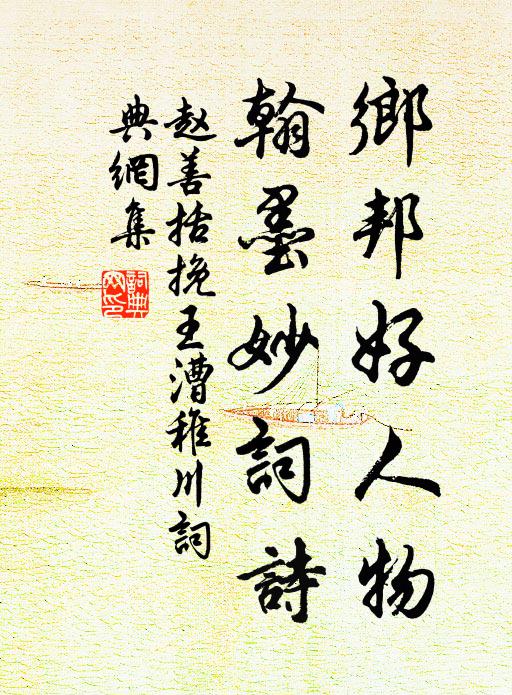 鄉邦好人物
翰墨妙詞詩
赵善括挽王漕稚川詞
典網集
詞典
网印